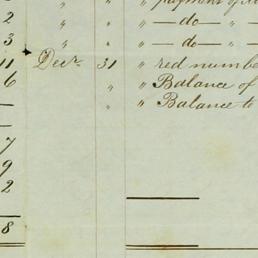 payment of
2 " " — do — "
3 " " — do — "
11 Decr. 31 " red numbe
6 " " Balance of
" " Balance to
7
9
2
8